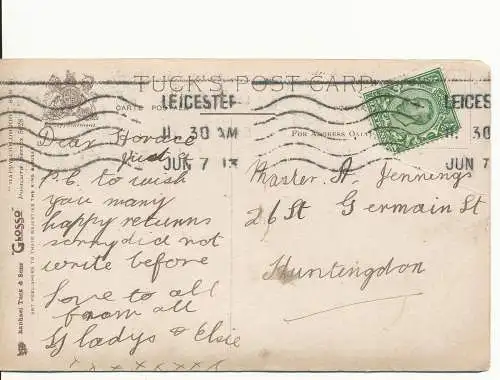 TUCK'S POST CARD
CARTE POSTALE
LEICESTER
11. 30 AM
JUN 7 13
LEICESTER
11. 30 AM
JUN 7
FOR ADDRESS ONLY
Dear Horace
just
P.C. to wish
you many
happy returns
sorry did not
write before
Love to all
from all
Gladys & Elsie
x x x x x x x
Master H Jennings
26 St Germain St
Huntingdon
RAPHAEL TUCK & SONS' "GLOSSO"
ART PUBLISHERS TO THEIR MAJESTIES THE KING &